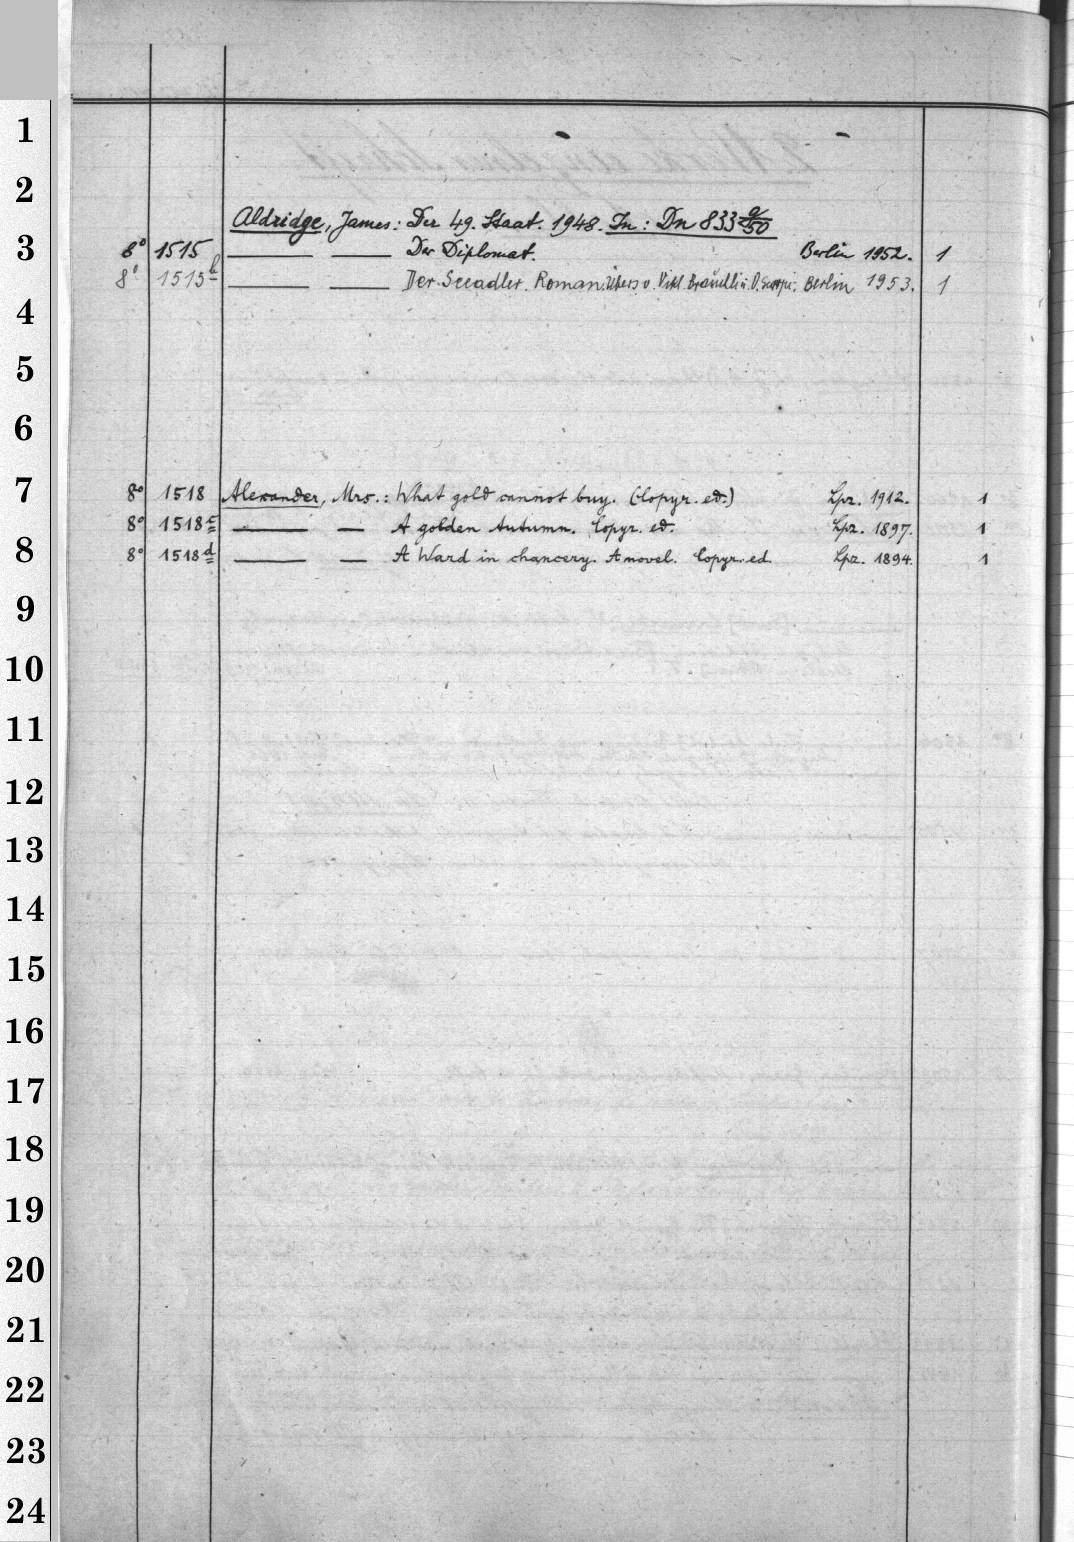 1
2
Aldridge, James: Der 49. Staat. 1948. In: Dn 833 9/50
3 8° 1515 —— —— Der Diplomat. Berlin 1952. 1
8° 1515b —— —— Der Seeadler. Roman. Übers. v. Berlin 1953. 1
4
5
6
7 8° 1518 Alexander, Mrs.: What gold cannot buy. (Copyr. ed.) Lpz. 1912. 1
8° 1518c —— — A golden Autumn. Copyr. ed. Lpz. 1897. 1
8 8° 1518d —— — A Ward in chancery. A novel. Copyr. ed. Lpz. 1894. 1
9
10
11
12
13
14
15
16
17
18
19
20
21
22
23
24